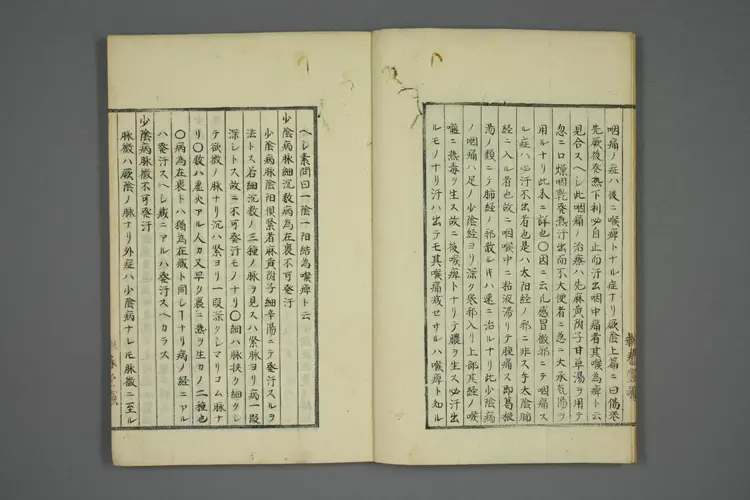 咽痛ノ症ハ後ニ喉痺トナル症ナリ厥陰上篇ニ曰傷寒
先厥後発熱下利必自止而汗出咽中痛者其喉為痺ト云
見合スヘレ此咽痛ノ治療ハ先麻黄附子甘草湯ヲ用テ
忽ニ口燥咽乾発熱汗出而不大便者ニ急ニ大承気湯ヲ
用ルナリ此未ニ詳也〇因ニ云凡感冒微邪ニテ咽痛ス
ル症ハ必汗不出者也是ハ太陽経ノ邪ニ非ス手太陰肺
経ニ入ル者也故ニ咽喉中ニ粘液滞リテ腫痛ス即葛根
湯ノ類ニテ肺経ノ邪散レハ速ニ治ルナリ此少陰病
ノ咽痛ハ足ノ少陰経ヨリ深ク裏邪入リ上部其経ノ喉
嚨ニ熱毒ヲ生ス故ニ後喉痺トナリテ膿ヲ生ス必汗出
ルモノナリ汗ハ出テモ其喉痛減セサルハ喉痺ト知ル
ヘレ素問曰一陰一陽結為喉痺ト云
少陰病脉細沉数病為在裏不可発汗
少陰病脉陰陽倶緊者麻黄附子細辛湯ニテ発汗スルヲ
法トス若細沉数ノ三種ノ脉ヲ見スハ緊脉ヨリ病一段
深レトス故ニ不可発汗モノナリ〇細ハ脉狭ク細クシ
テ欲微ノ脉ナリ沉ハ緊ヨリ一段深クレマリコム脉ナ
リ〇数ハ虚火アル人カ又早ク裏ニ熱ヲ生カノ二種也
〇病為在裏トハ猶為在蔵ト同レヿナリ病ノ経ニアル
ハ発汗スヘレ蔵ニアルハ発汗スヘカラス
少陰病脉微不可発汗
脉微ハ厥陰ノ脉ナリ外症ハ少陰病ナレモ脉微ニ至ル